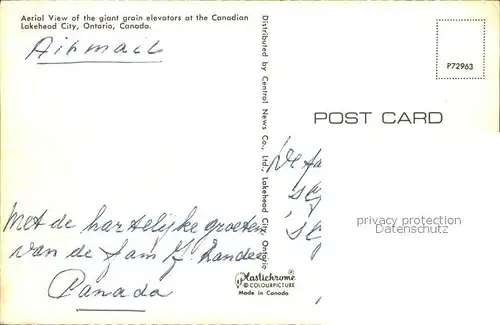 Aerial View of the giant grain elevators at the Canadian
Lakehead City, Ontario, Canada.
Airmail
Met de hartelijke groeten
van de fam
Canada
Distributed by Central News Co., Ltd., Lakehead City, Ontario
Plastichrome
® COLOURPICTURE
Made in Canada
P72963
POST CARD
De fa
privacy protection
Datenschutz